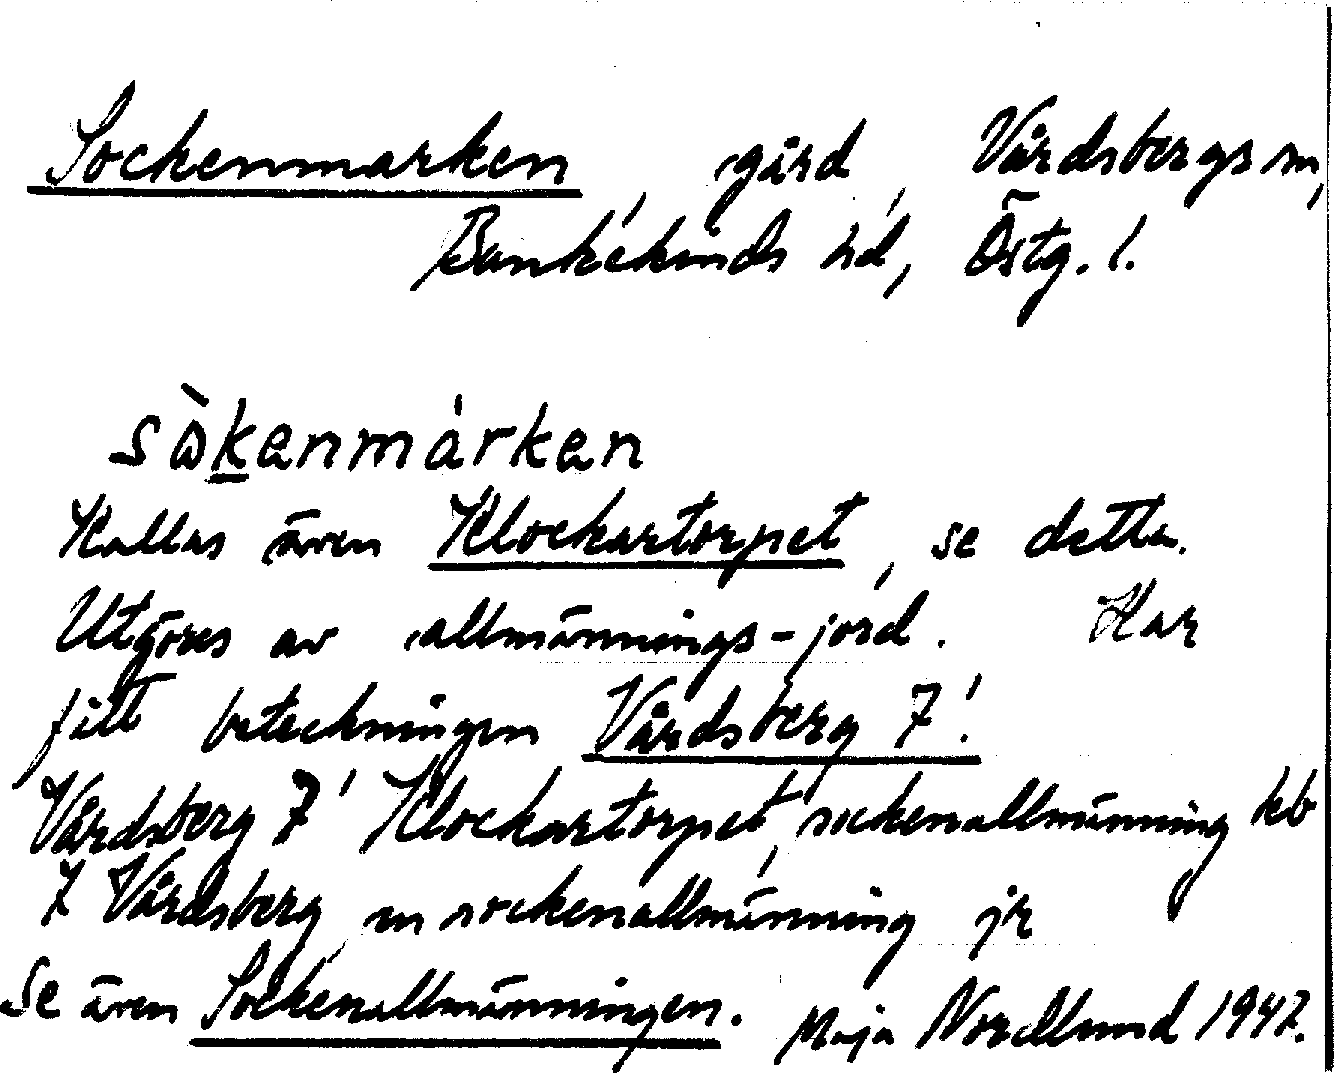 Sockenmarken, gård, Vårdsbergs sn,
Bankekinds hd, Östg. l.
sὼkenmárken
Kallas även Klockartorpet, se detta.
Utgöres av allmännings-jord. Har
fått beteckningen Vårdsberg 7¹.
Vårdsberg 7¹ Klockartorpet, sockenallmänning kb
7 Vårdsberg, en sockenallmänning jr
Se även Sockenallmänningen. Maja Nordlund 1947.